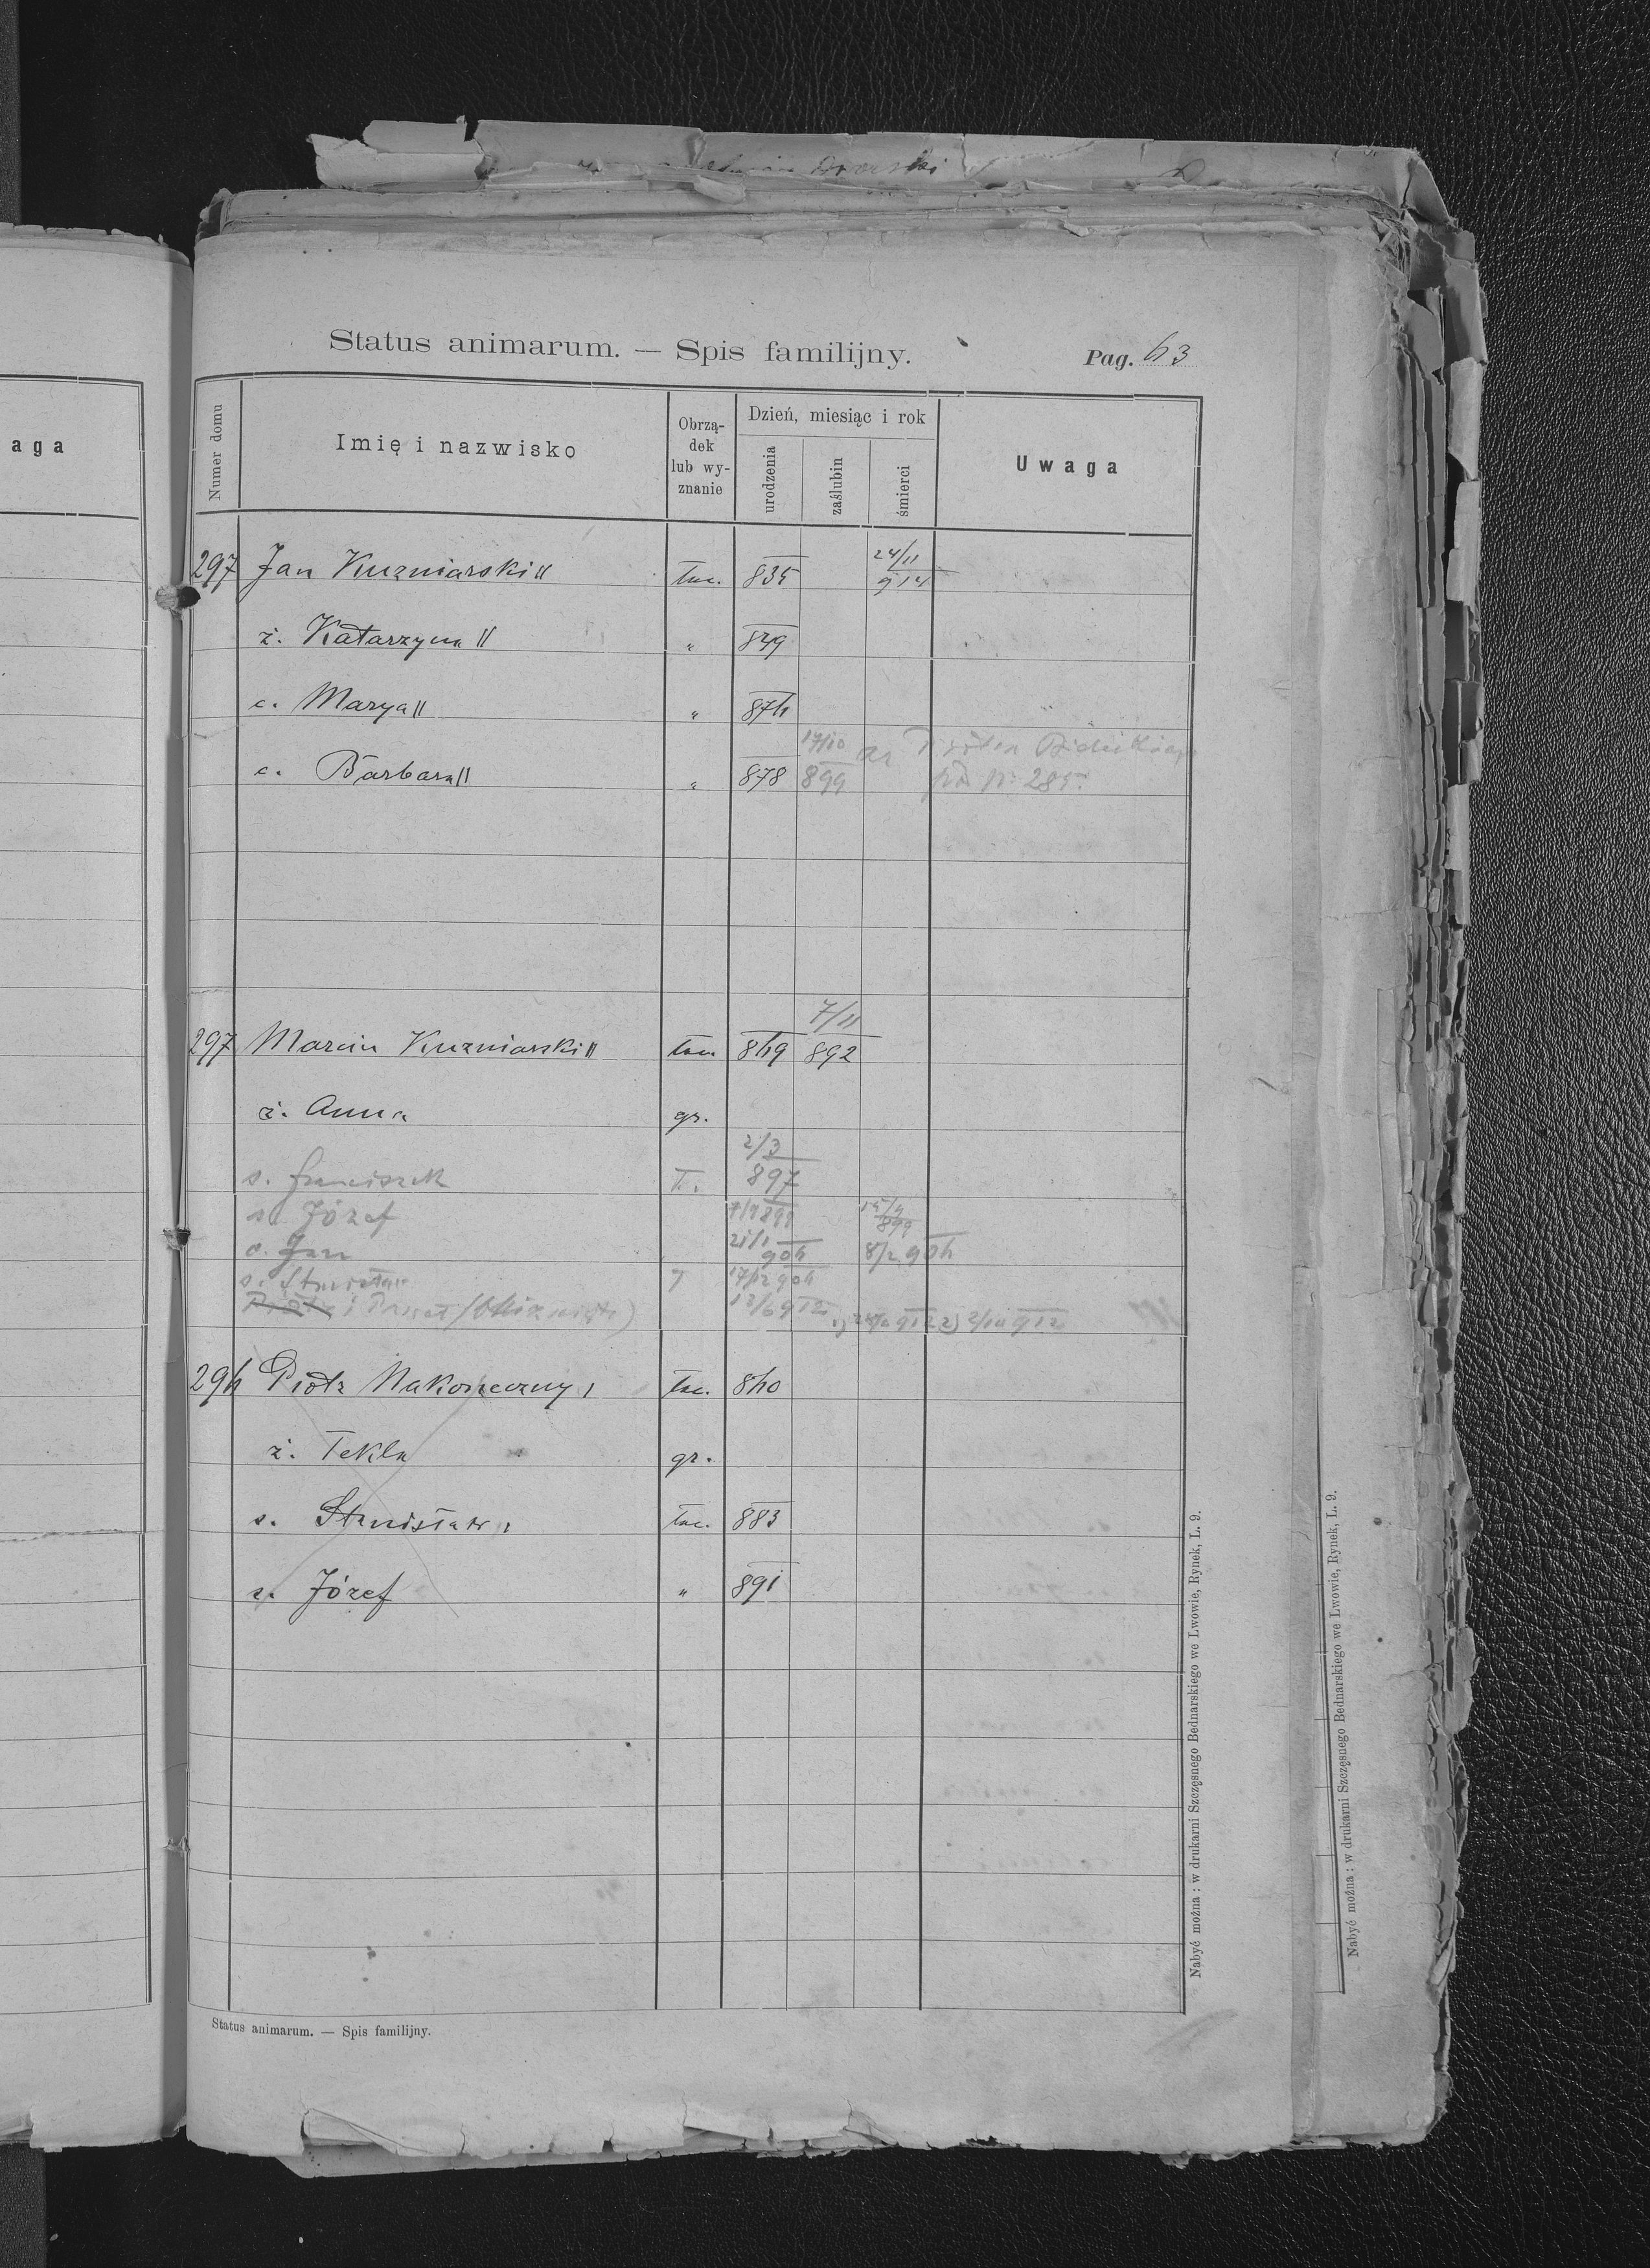 Dworski
aga
Status animarum. — Spis familijny.
Pag. 63
Numer domu
Imię i nazwisko
Obrzą-
dek
lub wy-
znanie
Dzień, miesiąc i rok
urodzenia
zaślubin
śmierci
Uwaga
297 Jan Kuzniarski łac. 835 24/11 914
ż. Katarzyna " 849
c. Marya " 876
c. Barbara " 878 17/10 899
285
297 Marcin Kuzniarski łac. 869 7/11 892
ż. Anna gr.
s. Franciszek ł. 897 2/3
s. Józef 899 15/9 899
s. Jan 21/1 906 8/2 906
s. Stanisław 17/12 906
Piotr i Paweł 912 912 912
296 Piotr Nakoneczny łac. 860
ż. Tekla gr.
s. Stanisław łac. 883
s. Józef " 891
Status animarum. — Spis familijny.
Nabyć można : w drukarni Szczęsnego Bednarskiego we Lwowie, Rynek, L. 9.
Nabyć można : w drukarni Szczęsnego Bednarskiego we Lwowie, Rynek, L. 9.